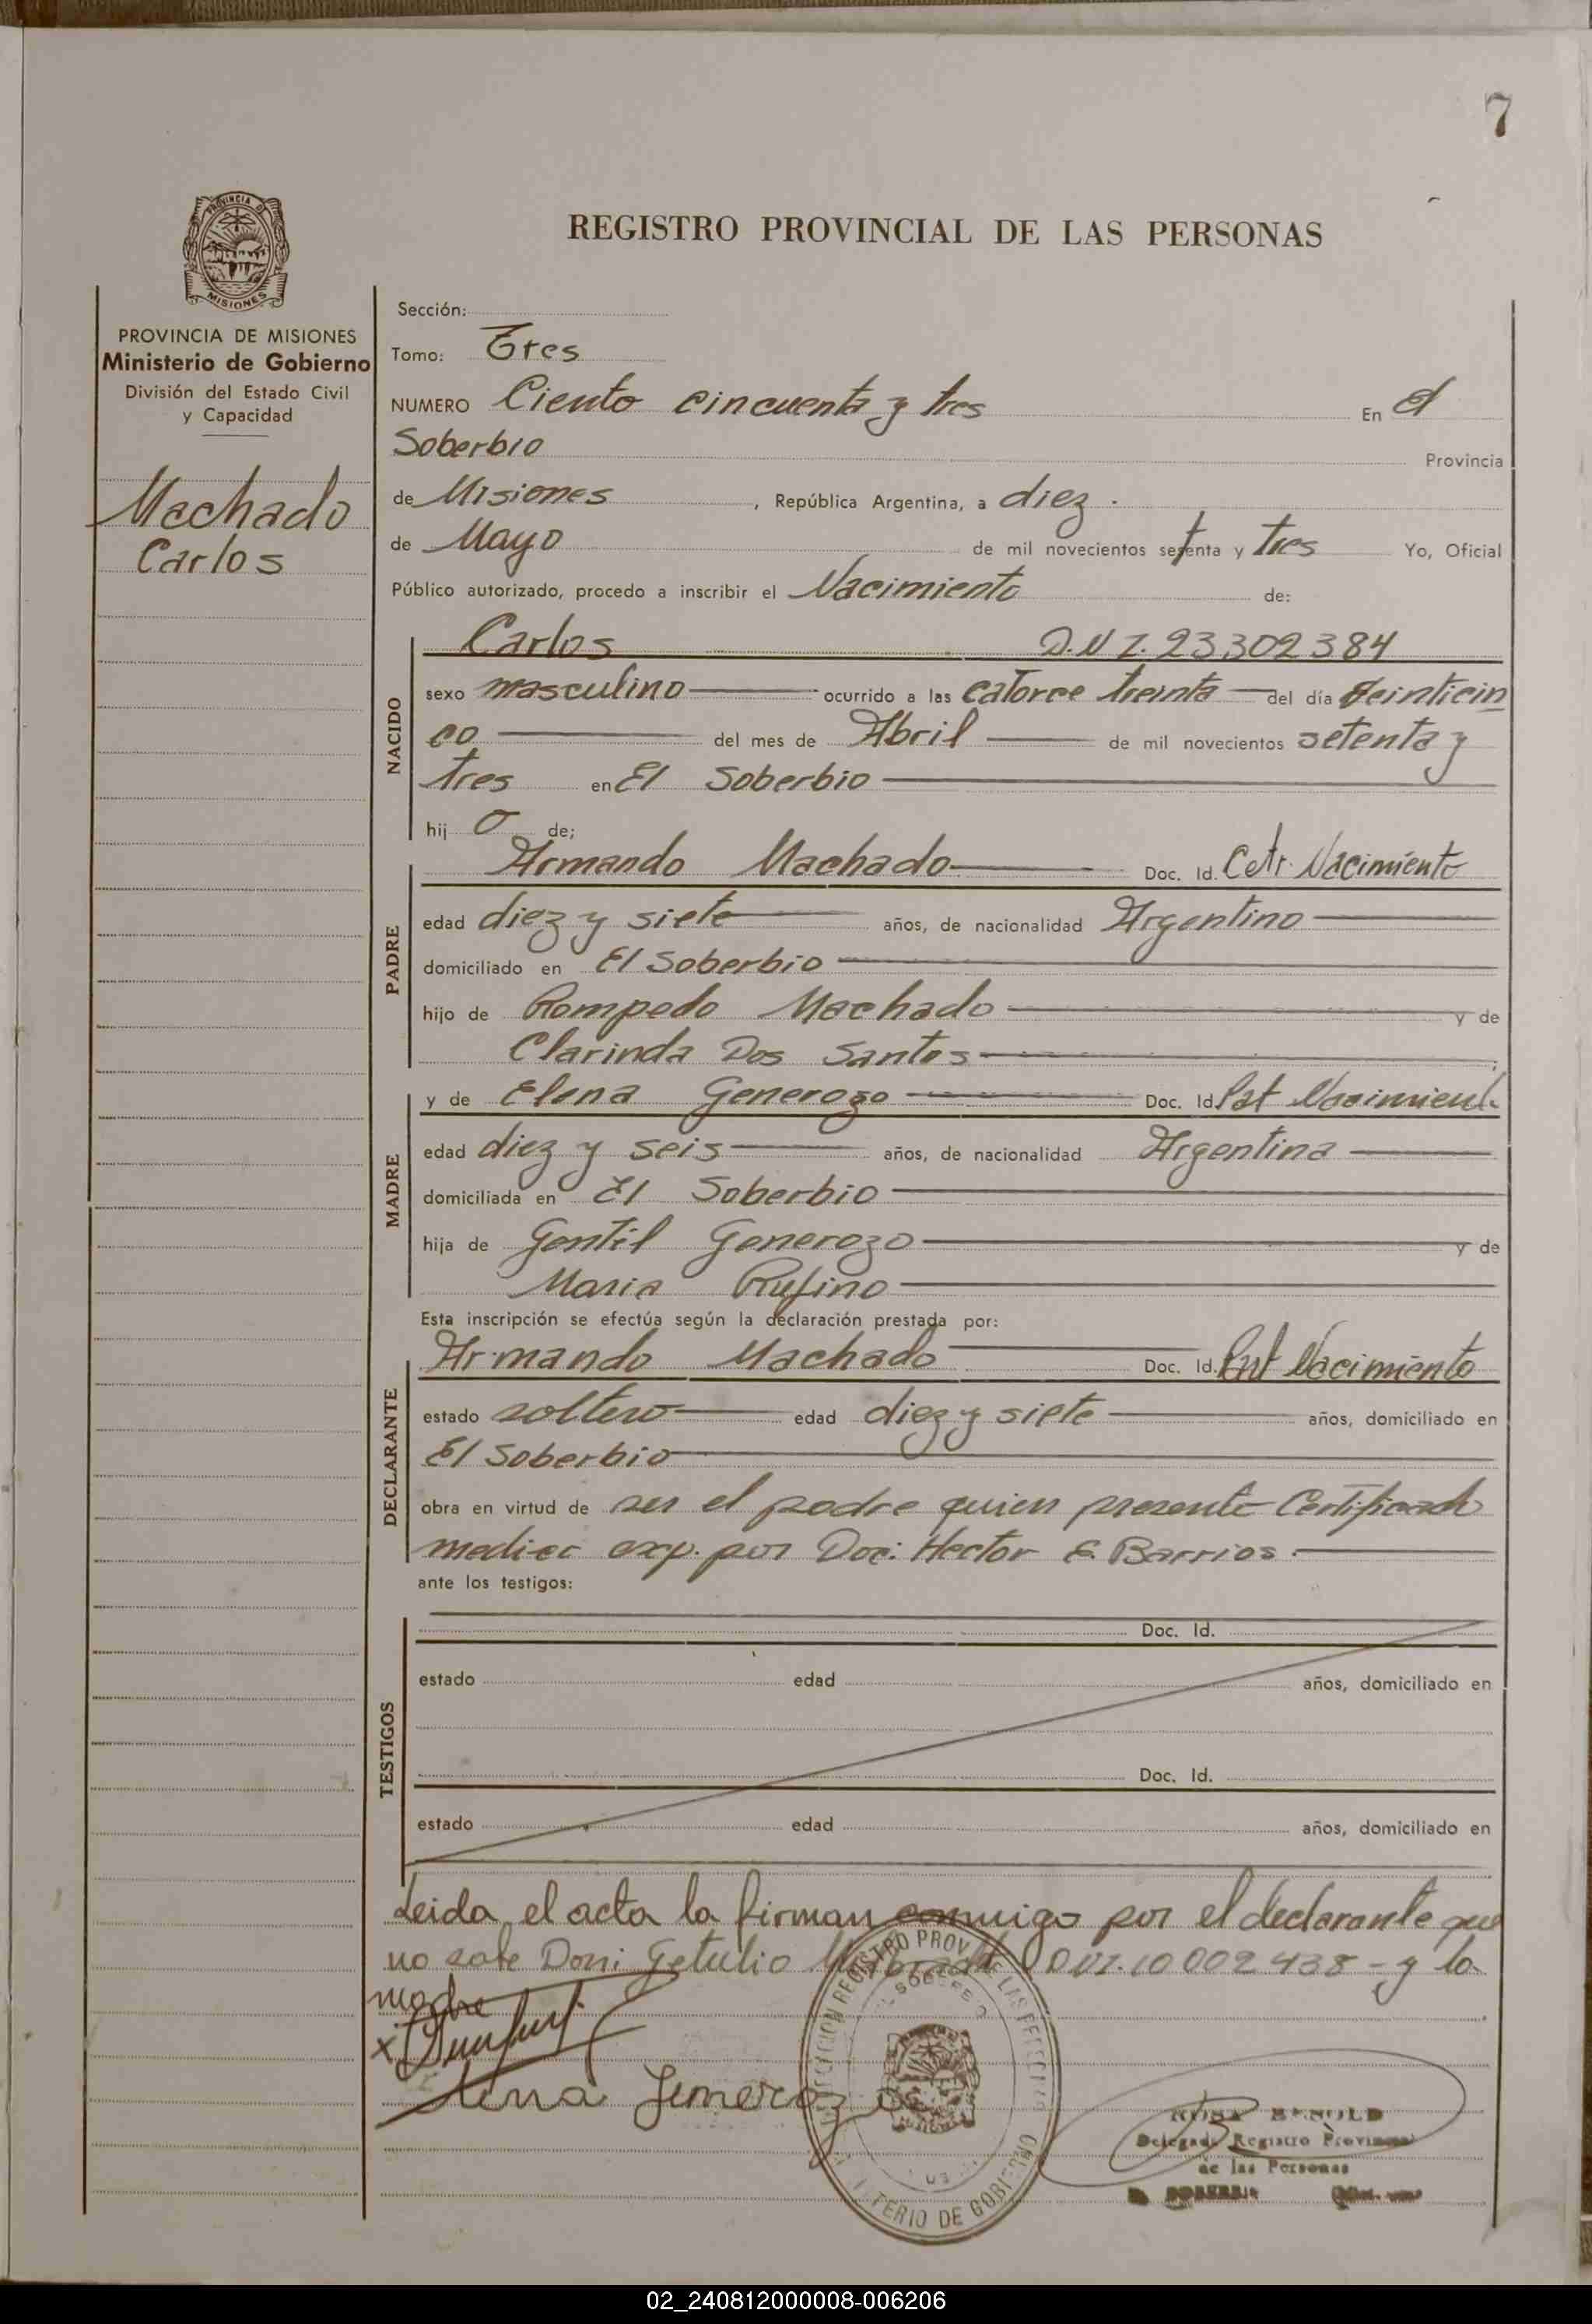 7
REGISTRO PROVINCIAL DE LAS PERSONAS
PROVINCIA DE MISIONES
Ministerio de Gobierno
División del Estado Civil
y Capacidad
Machado
Carlos
Sección:
Tomo: Tres
NUMERO Ciento cincuenta y tres En el
Soberbio Provincia
de Misiones , República Argentina, a diez .
de Mayo de mil novecientos setenta y tres Yo, Oficial
Público autorizado, procedo a inscribir el Nacimiento de:
NACIDO
Carlos D.N I. 23302384
sexo masculino ocurrido a las catorce treinta del día veinticin
co del mes de Abril de mil novecientos setenta y
tres en El Soberbio
hij o de;
PADRE
Armando Machado Doc. Id. Cetr. Nacimiento
edad diez y siete años, de nacionalidad Argentino
domiciliado en El Soberbio
hijo de Pompedo Machado y de
Clarinda Dos Santos
MADRE
y de Elena Generozo Doc. Id. Nacimient
edad diez y seis años, de nacionalidad Argentina
domiciliada en El Soberbio
hija de Gentil Generozo y de
Maria Rufino
Esta inscripción se efectúa según la declaración prestada por:
DECLARANTE
Armando Machado Doc. Id. Nacimiento
estado soltero edad diez y siete años, domiciliado en
El Soberbio
obra en virtud de ser el padre quien presente Certificado
medico exp. por Doc: Hector E. Barrios.
ante los testigos:
TESTIGOS
Doc. Id.
estado edad años, domiciliado en
Doc. Id.
estado edad años, domiciliado en
Leida el acta la firman conmigo por el declarante que
no sabe Don: Getulio D.N.I. 10002438 - y la
madre
x
Elena Jenerozo
DIRECCION REGISTRO PROV. DE LAS PERSONAS
MINISTERIO DE GOBIERNO
MISIONES
ROSA
Delegada Registro Provincial
de las Personas
02_240812000008-006206